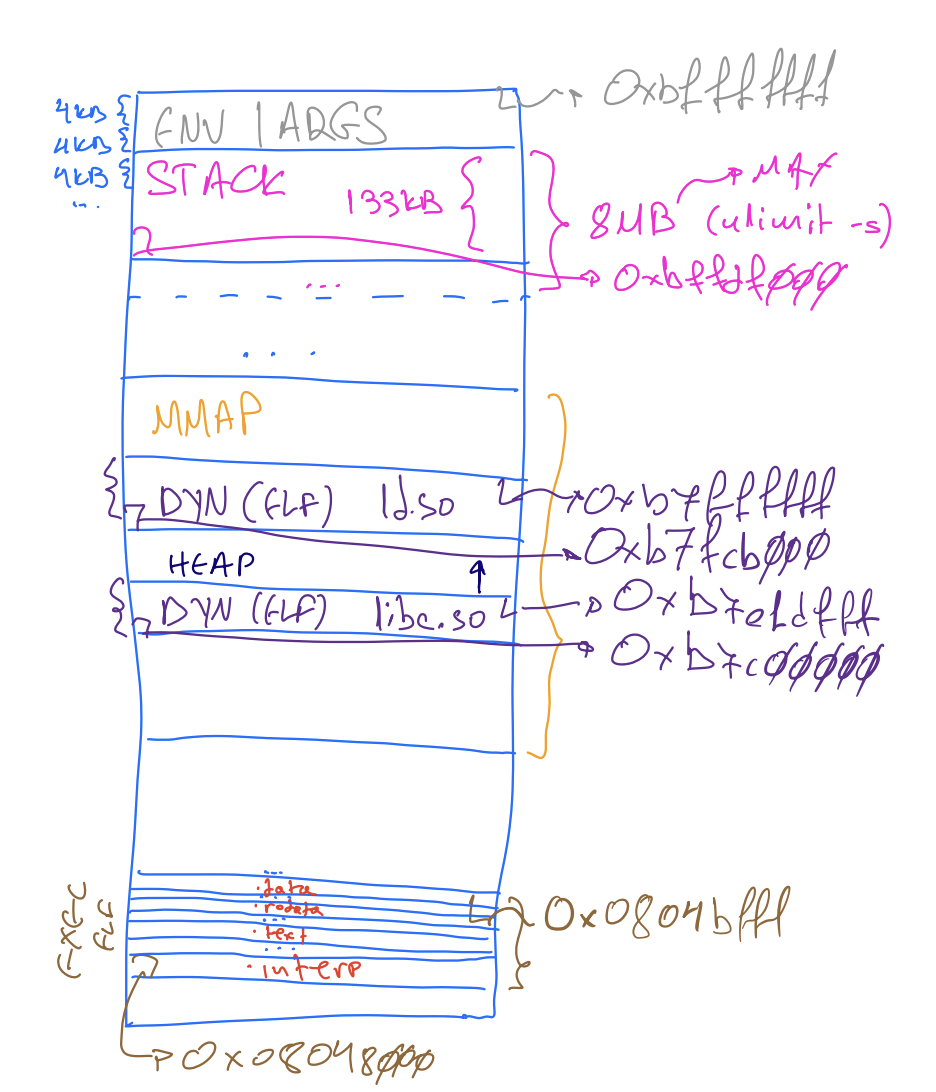 0xbfffffff
4kB
ENV | ARGS
4kB
4kB
...
STACK
133kB
8MB
MAX
(ulimit -s)
0xbffdf000
...
....
MMAP
DYN (ELF) ld.so
0xb7ffffff
0xb7fcb000
HEAP
DYN (ELF) libc.so
0xb7e1dfff
0xb7c00000
...
.data
...
.rodata
...
.text
...
.interp
EXEC
ELF
0x0804bfff
0x08048000